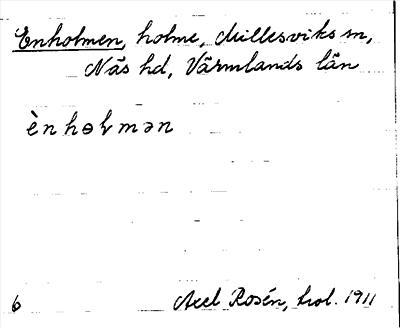 Enholmen, holme, Millesviks sn,
Näs hd, Värmlands län
ènhɵɫmən
6
Axel Rosén, kol. 1911